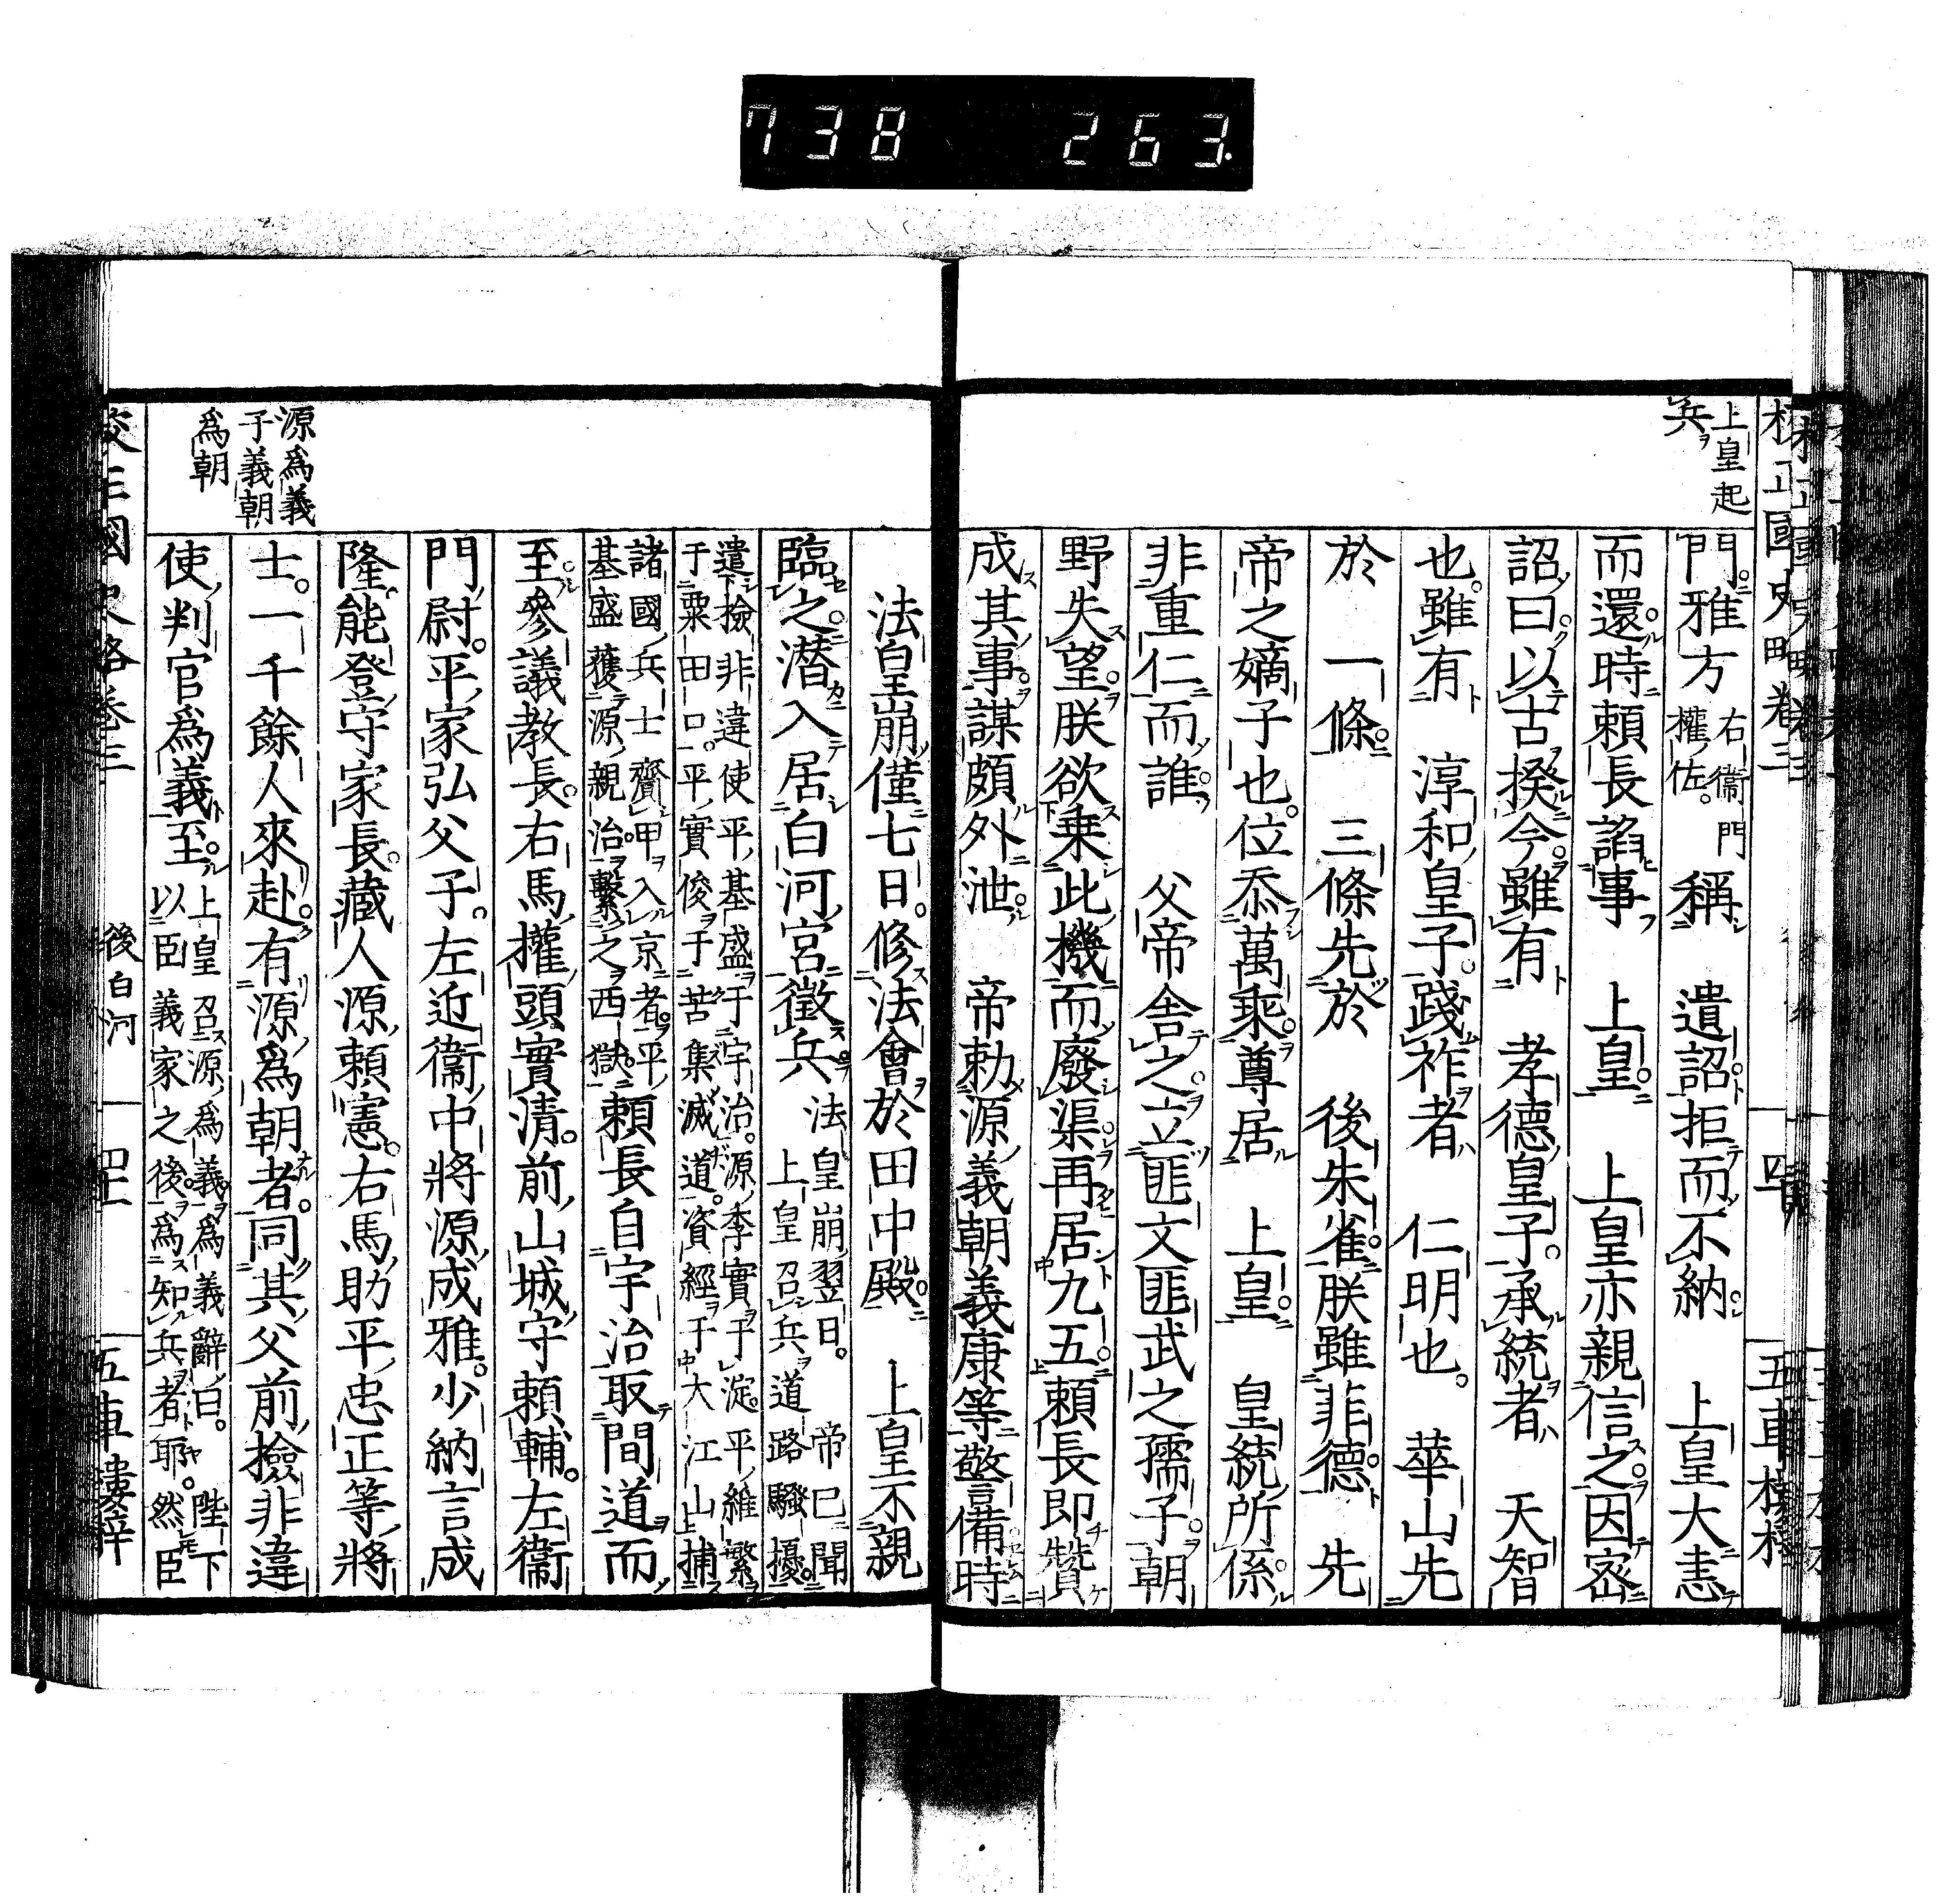 738 263
上皇起
兵
門雅方右衞門權佐。稱 遺詔拒而不納 上皇大恚
而還時賴長謟事 上皇 上皇亦親信之因密
詔曰以古揆今雖有 孝德皇子承統者 天智
也雖有 淳和皇子踐祚者 仁明也 華山先
於 一條 三條先於 後朱雀朕雖非德 先
帝之嫡子也位忝萬乘尊居 上皇 皇統所係
非重仁而誰 父帝舍之立匪文匪武之孺子朝
野失望朕欲乘此機而廢渠再居九五賴長即贊
成其事謀頗外泄 帝勅源義朝義康等警備時
法皇崩僅七日修法會於田中殿 上皇不親
臨之潛入居白河宮徵兵法皇崩翌日。上皇召兵道路騷擾。帝已聞
遣撿非違使平基盛于宇治。源季實于淀。平維繁于粟田口。平實俊于苦集滅道。資經于大江山捕
諸國兵士齎甲入京者。平基盛獲源親治繫之西獄。賴長自宇治取間道而
至參議教長右馬權頭實清前山城守賴輔左衞
門尉平家弘父子左近衞中將源成雅少納言成
隆能登守家長藏人源賴憲右馬助平忠正等將
士一千餘人來赴有源爲朝者同其父前撿非違
使判官爲義至上皇召源爲義。爲義辭曰。陛下以臣義家之後。爲知兵者耶。然臣
源爲義
子義朝
爲朝
後白河